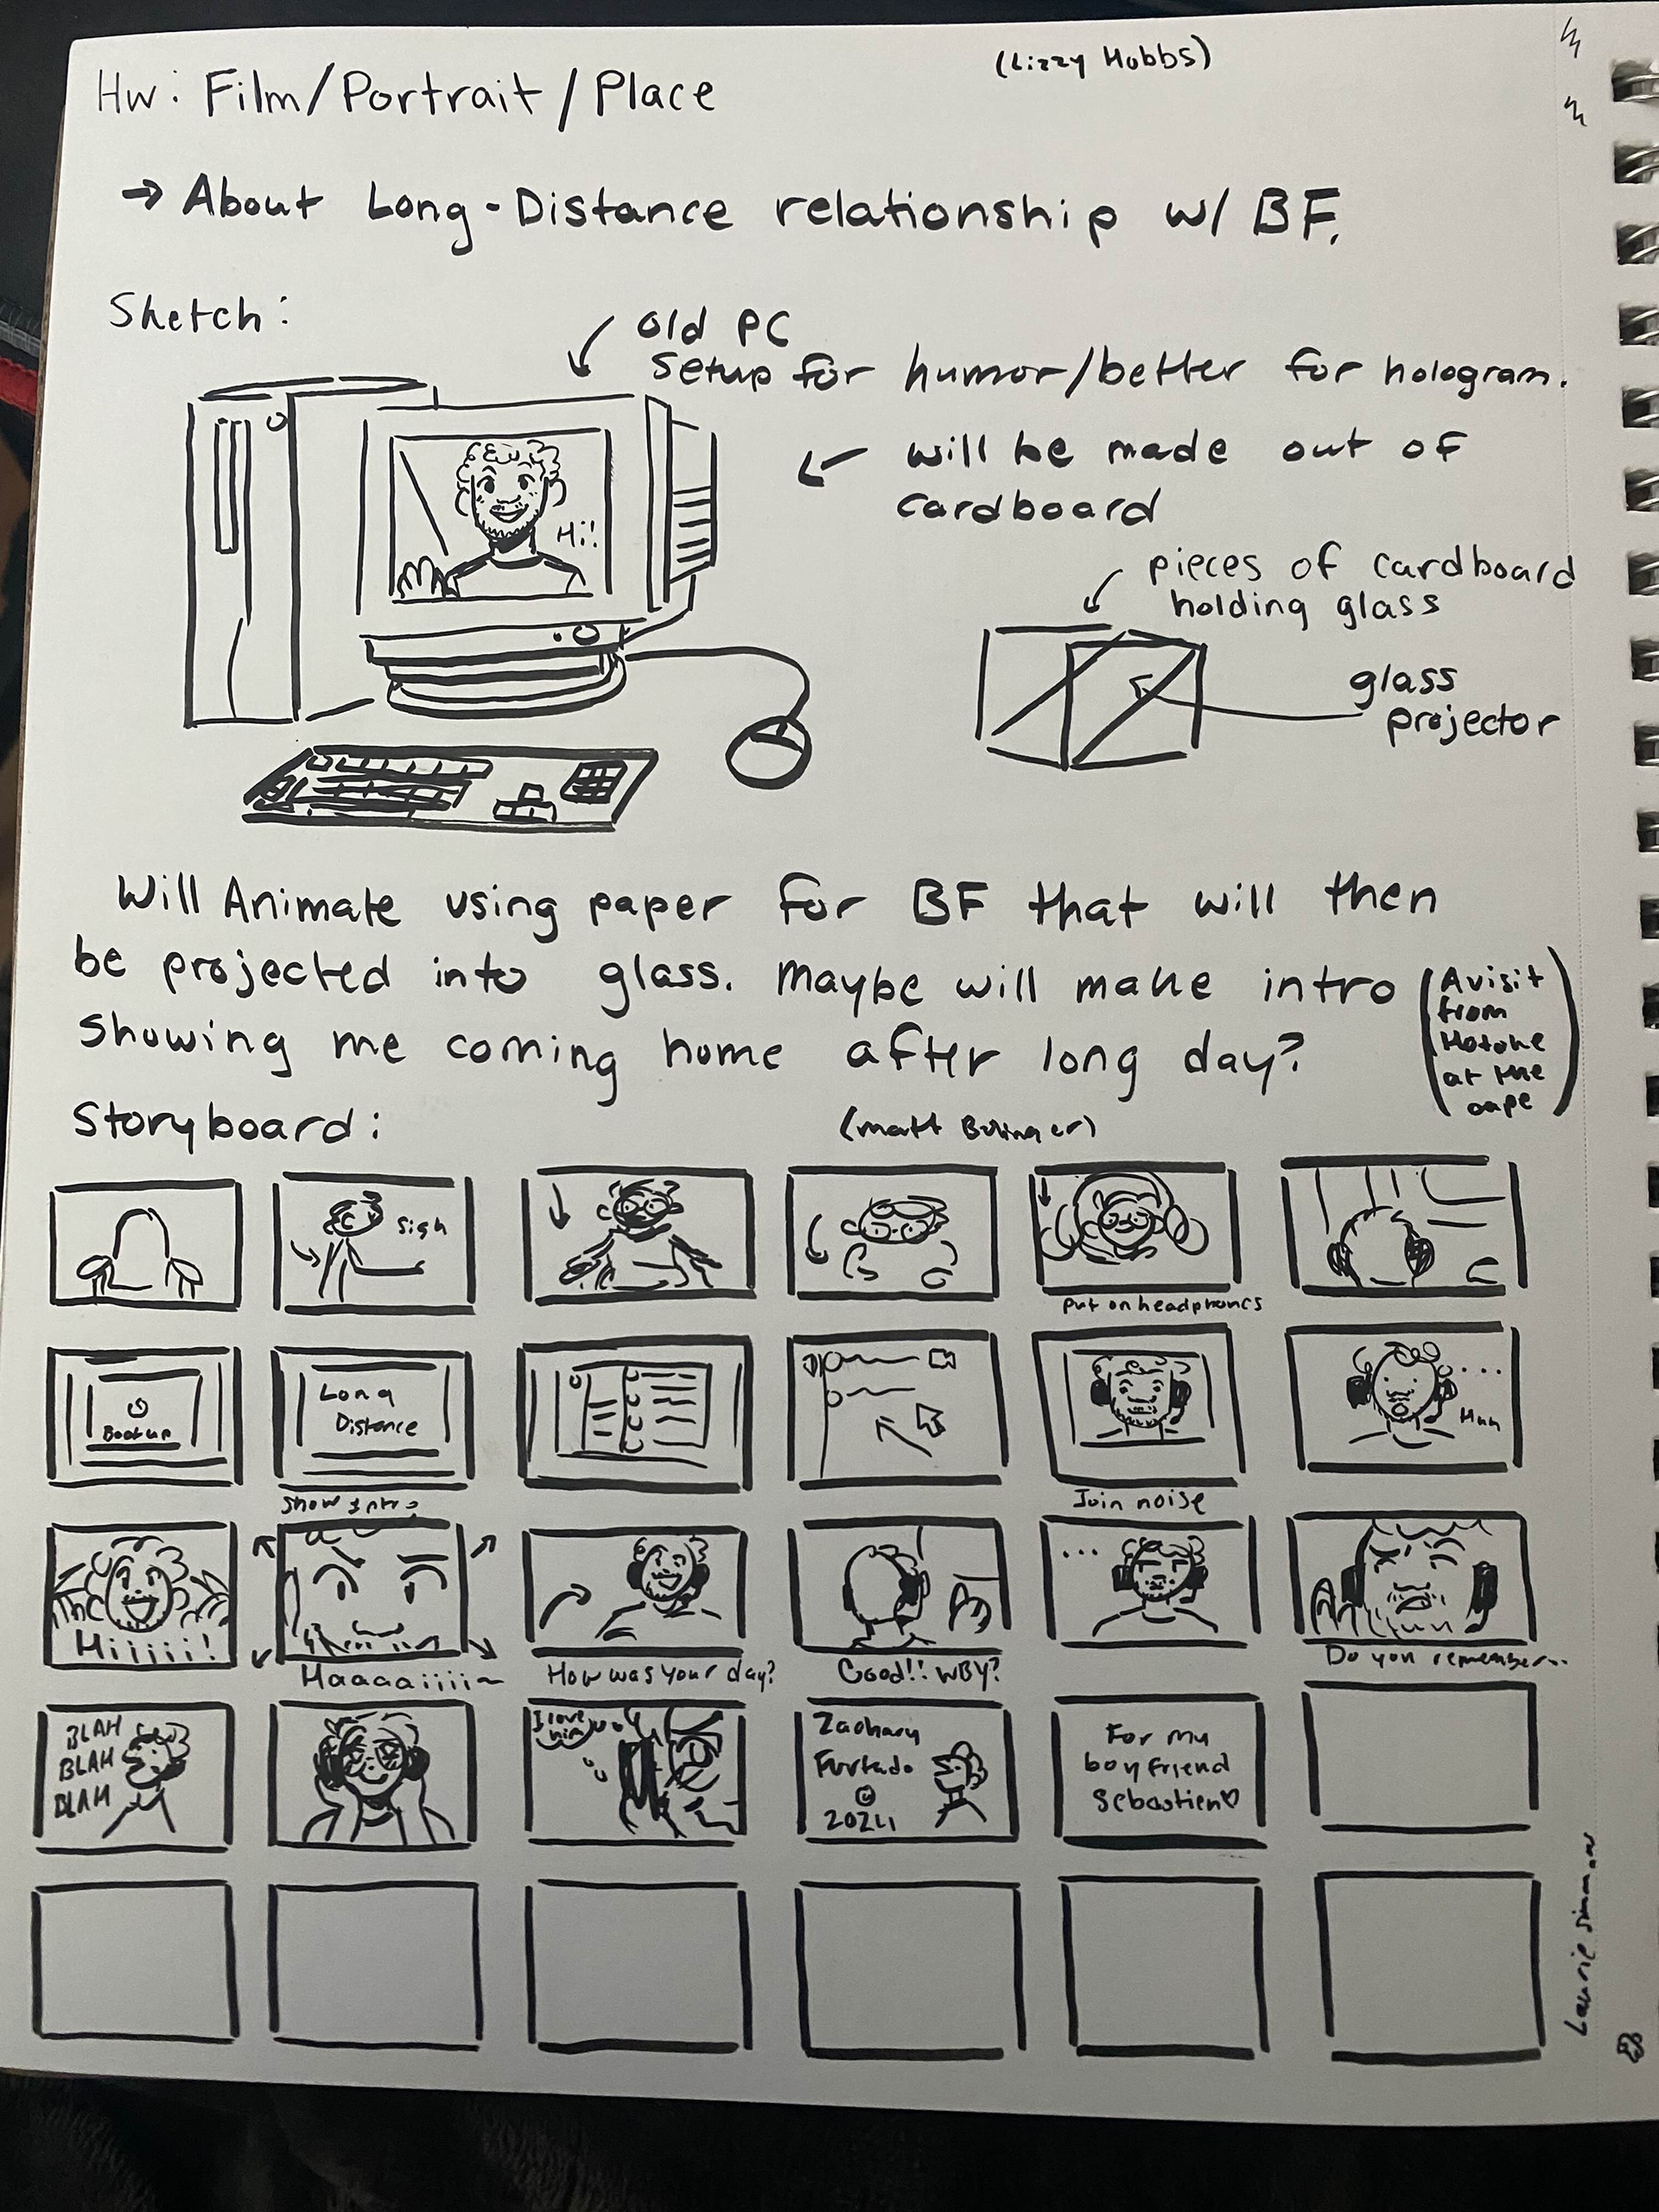 (Lizzy Hobbs)
Hw: Film/Portrait/Place
→ About Long-Distance relationship w/ BF.
Sketch:
old PC
setup for humor/better for hologram.
will be made out of
cardboard
Hi!
pieces of cardboard
holding glass
glass
projector
Will Animate using paper for BF that will then
be projected into glass. Maybe will make intro
showing me coming home after long day?
(A visit
from
at the
Storyboard:
(Matt
sigh
put on headphones
Boot up
Long
Distance
show intro
Join noise
...
Hiiiiii!
Haaaaiiiii~
How was your day?
Good!! WBY?
...
Do you remember...
BLAH
BLAH
BLAH
I love
him
Zachary
Furtado
©
2024
For my
boyfriend
Sebastien♡
Laurie